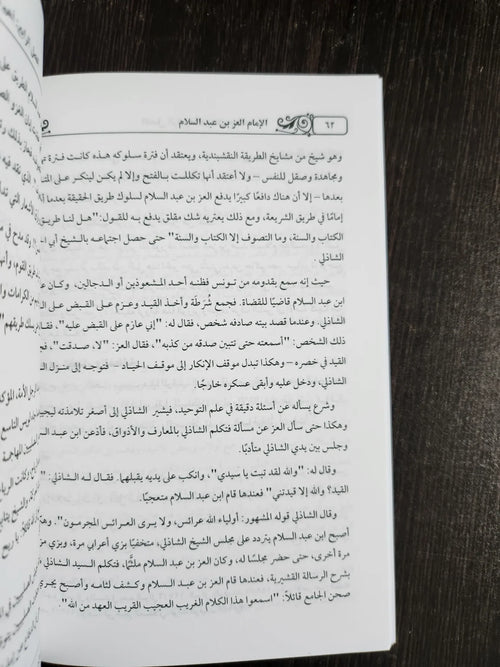 ٦٢
الإمام العز بن عبد السلام
وهو شيخ من مشايخ الطريقة النقشبندية، ويعتقد أن فترة سلوكه هذه كانت فترة
ومجاهدة وصقل للنفس – ولا أعتقد أنها تكللت بالفتح وإلا لم يكن لينكر على
بعدها – إلا أن هناك دافعًا كبيرًا يدفع العز بن عبد السلام لسلوك طريق الحقيقة بعدما
إمامًا في طريق الشريعة، ومع ذلك يعتريه شك مقلق يدفع به للقول: "هل لنا طريق
الكتاب والسنة، وما التصوف إلا الكتاب والسنة" حتى حصل اجتماعه بالشيخ أبي
الشاذلي.
حيث إنه سمع بقدومه من تونس فظنه أحد المشعوذين أو الدجالين، وكان
ابن عبد السلام قاضيًا للقضاة. فجمع شُرَطَة وأخذ القيد وعزم على القبض على
الشاذلي. وعندما قصد بيته صادفه شخص، فقال له: "إني عازم على القبض عليه"، فقال
ذلك الشخص: "أسمعته حتى تتبين صدقه من كذبه"، فقال العز: "لا، صدقت"،
القيد في خصره – وهكذا تبدل موقف الإنكار إلى موقف الحياد – فتوجه إلى منزل
الشاذلي، ودخل عليه وأبقى عسكره خارجًا.
وشرع يسأله عن أسئلة دقيقة في علم التوحيد، فيشير الشاذلي إلى أصغر تلامذته
وهكذا حتى سأل العز عن مسألة فتكلم الشاذلي بالمعارف والأذواق، فأذعن ابن عبد
وجلس بين يدي الشاذلي متأدبًا.
وقال له: "والله لقد تبت يا سيدي"، وانكب على يديه يقبلهما. فقال له الشاذلي:
القيد؟ والله إلا قيدتني" فعندها قام ابن عبد السلام متعجبًا.
وقال الشاذلي قوله المشهور: أولياء الله عرائس، ولا يرى العرائس المجرمون".
أصبح ابن عبد السلام يتردد على مجلس الشيخ الشاذلي، متخفيًا بزي أعرابي مرة، وبزي
مرة أخرى، حتى حضر مجلسًا له، وكان العز بن عبد السلام ملثمًا، فتكلم السيد الشاذلي
بشرح الرسالة القشيرية، فعندها قام عز بن عبد السلام وكشف لثامه وأصبح يجري
صحن الجامع قائلاً: "اسمعوا هذا الكلام الغريب العجيب القريب العهد من الله".